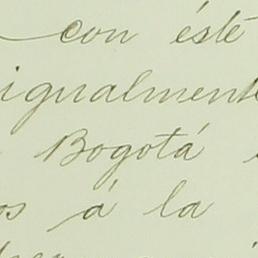 con éste
igualmente
Bogotá
os á la